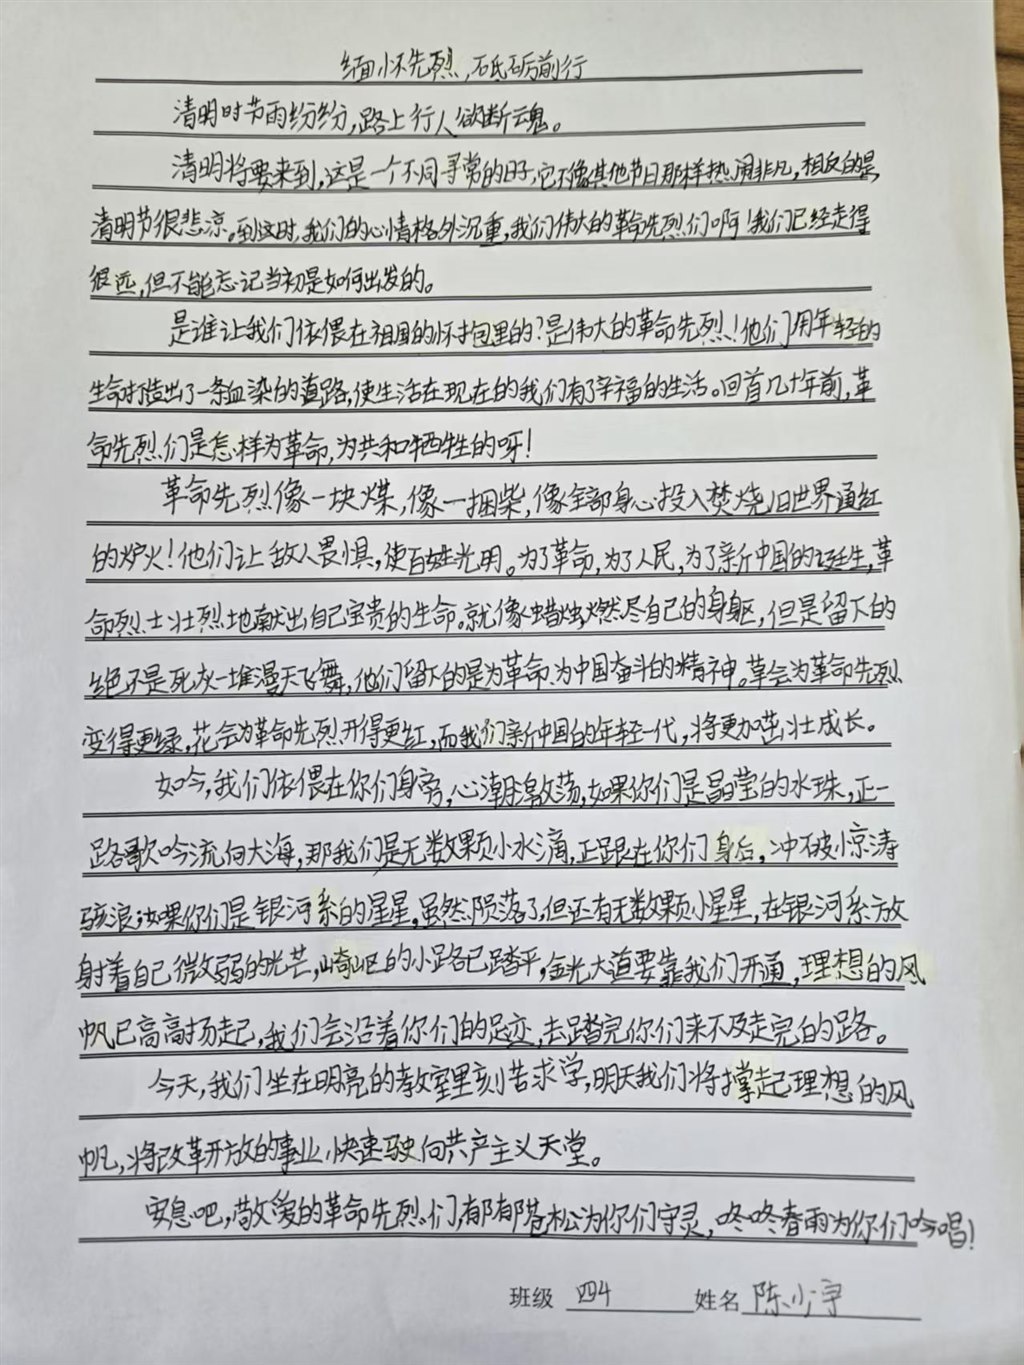 缅怀先烈,砥砺前行
清明时节雨纷纷,路上行人欲断魂。
清明将要来到,这是一个不同寻常的日子,它不像其他节日那样热闹非凡,相反的是,
清明节很悲凉。到这时,我们的心情格外沉重,我们伟大的革命先烈们啊!我们已经走得
很远,但不能忘记当初是如何出发的。
是谁让我们依偎在祖国的怀抱里的?是伟大的革命先烈!他们用年轻的
生命打造出了一条血染的道路,使生活在现在的我们有了幸福的生活。回首几十年前,革
命先烈们是怎样为革命,为共和牺牲的呀!
革命先烈像一块煤,像一捆柴,像全部身心投入焚烧旧世界通红
的炉火!他们让敌人畏惧,使百姓光明。为了革命,为了人民,为了新中国的诞生,革
命烈士壮烈地献出自己宝贵的生命。就像蜡烛燃尽自己的身躯,但是留下的
绝不是死灰一堆漫天飞舞,他们留下的是为革命、为中国奋斗的精神。草会为革命先烈
变得更绿,花会为革命先烈开得更红,而我们新中国的年轻一代,将更加茁壮成长。
如今,我们依偎在你们身旁,心潮激荡,如果你们是晶莹的水珠,正一
路歌吟流向大海,那我们是无数颗小水滴,正跟在你们身后,冲破惊涛
骇浪;如果你们是银河系的星星,虽然陨落了,但还有无数颗小星星,在银河系放
射着自己微弱的光芒,崎岖的小路已踏平,金光大道要靠我们开通,理想的风
帆已高高扬起,我们会沿着你们的足迹,去踏完你们来不及走完的路。
今天,我们坐在明亮的教室里刻苦求学,明天我们将撑起理想的风
帆,将改革开放的事业,快速驶向共产主义天堂。
安息吧,敬爱的革命先烈们,郁郁苍松为你们守灵,咚咚春雨为你们吟唱!
班级 四4 姓名 陈小宇